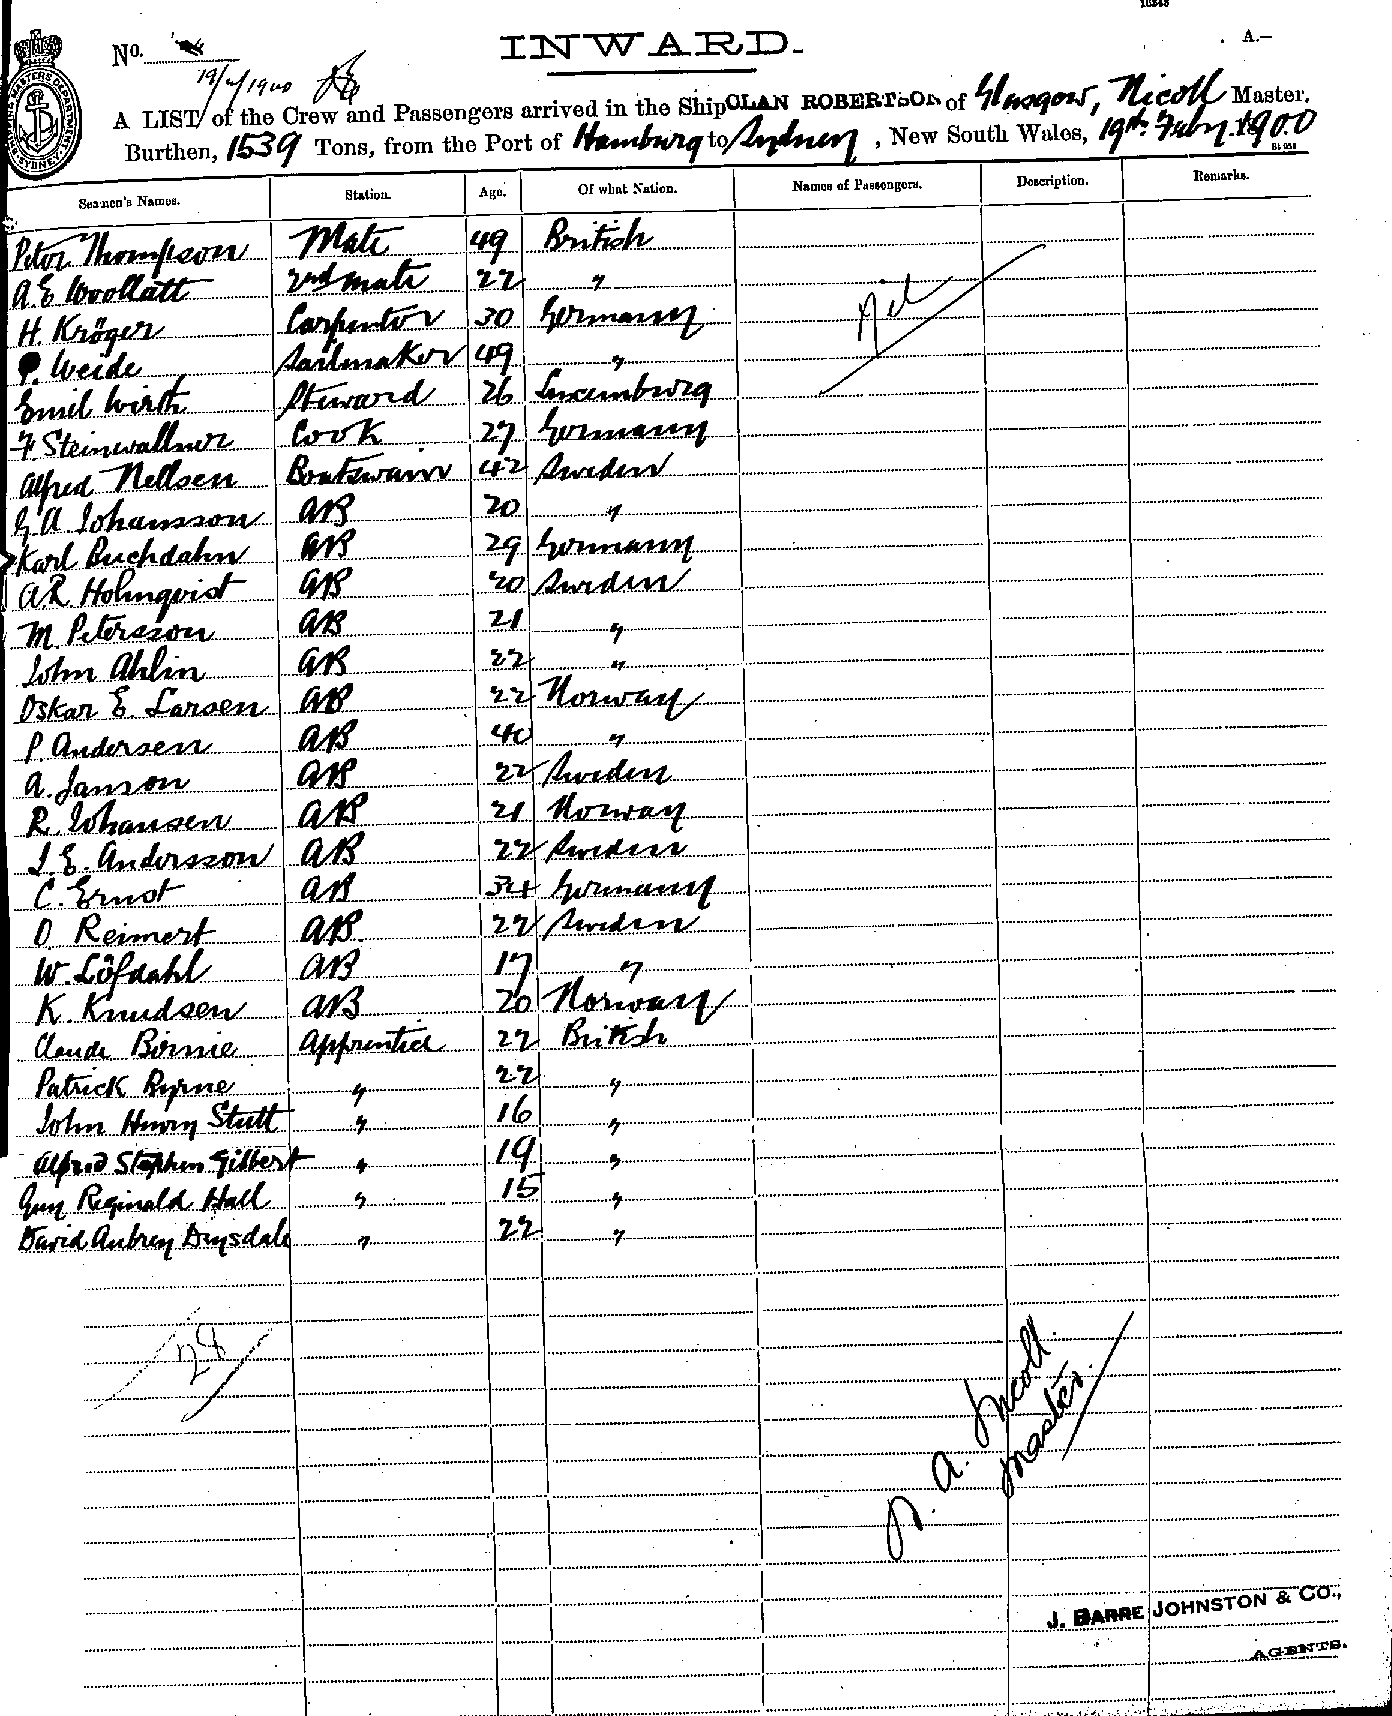 INWARD.
A.—
No.
19/2/1900
A LIST of the Crew and Passengers arrived in the Ship CLAN ROBERTSON of Glasgow, Nicoll Master,
Burthen, 1539 Tons, from the Port of Hamburg to Sydney, New South Wales, 19th Feby. 1900
Seamen's Names. Station. Age. Of what Nation. Names of Passengers. Description. Remarks.
Peter Thompson Mate 49 British
A. E Woollatt 2nd mate 22 "
Nil
H. Kröger Carpenter 30 Germany
P. Weide Sailmaker 49 "
Emil Wirth Steward 26 Luxemburg
F. Steinwallner Cook 27 Germany
Alfred Nellsen Boatswain 42 Sweden
G A Johansson AB 20 "
Karl Buchdahn AB 29 Germany
A R Holmqvist AB 20 Sweden
M. Petersson AB 21 "
John Ahlin AB 22 "
Oskar E. Larsen AB 22 Norway
P. Andersen AB 40 "
A. Janson AB 22 Sweden
R. Johansen AB 21 Norway
J. E. Andersson AB 22 Sweden
C. Ernst AB 34 Germany
O Reimert AB 22 Sweden
W. Löfdahl AB 17 "
K. Knudsen AB 20 Norway
Claude Birnie Apprentice 22 British
Patrick Byrne " 22 "
John Henry Stutt " 16 "
Alfred Stephen Gilbert " 19 "
Guy Reginald Hall " 15 "
David Aubrey Drysdale " 22 "
28
A. Nicoll
Master.
J. BARRE JOHNSTON & CO.,
AGENTS.